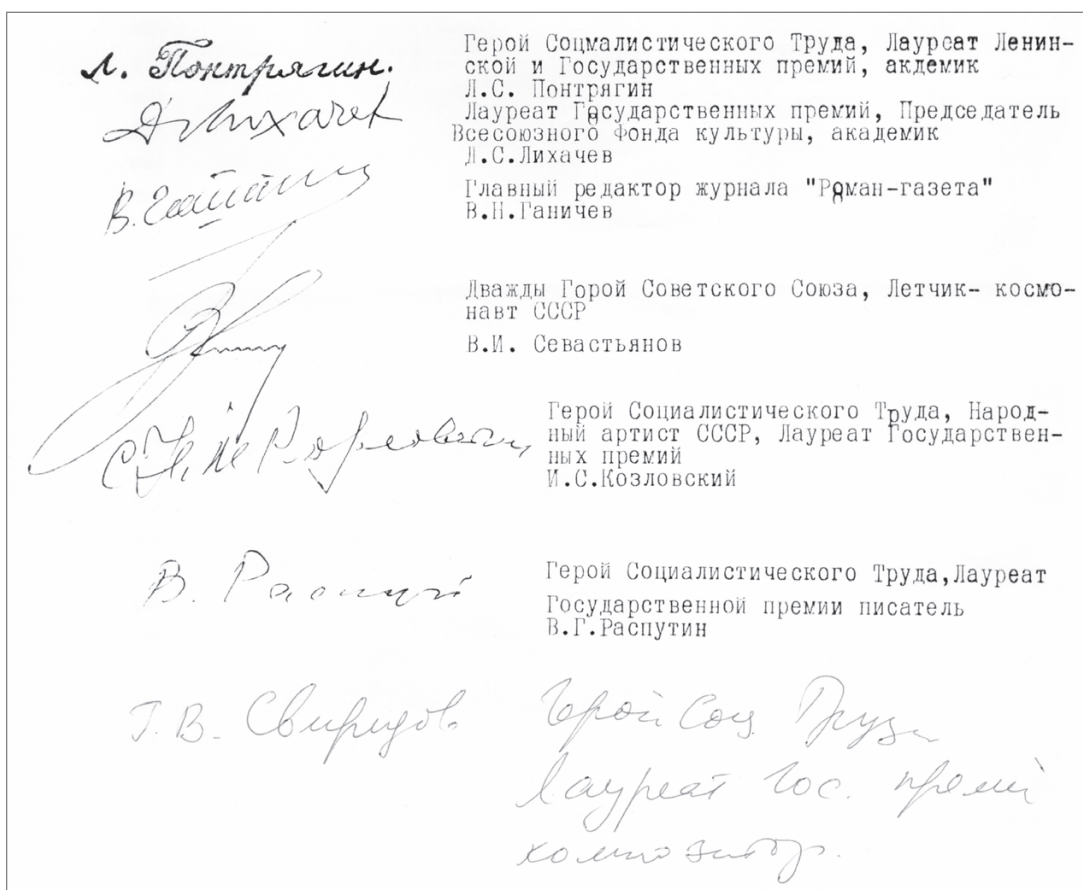 Л. Понтрягин.
Герой Соцмалистического Труда, Лауреат Ленин-
ской и Государственных премий, акдемик
Л.С. Понтрягин
Д Лихачев
Лауреат Государственных премий, Председатель
Всесоюзного Фонда культуры, академик
Д.С.Лихачев
В.
Главный редактор журнала "Роман-газета"
В.Н.Ганичев
Дважды Горой Советского Союза, Летчик- космо-
навт СССР
В.И. Севастьянов
Герой Социалистического Труда, Народ-
ный артист СССР, Лауреат Государствен-
ных премий
И.С.Козловский
В. Распутин
Герой Социалистического Труда,Лауреат
Государственной премии писатель
В.Г.Распутин
Г.В. Свиридов
Герой Соц Труда
Лауреат Гос. премий
композитор.